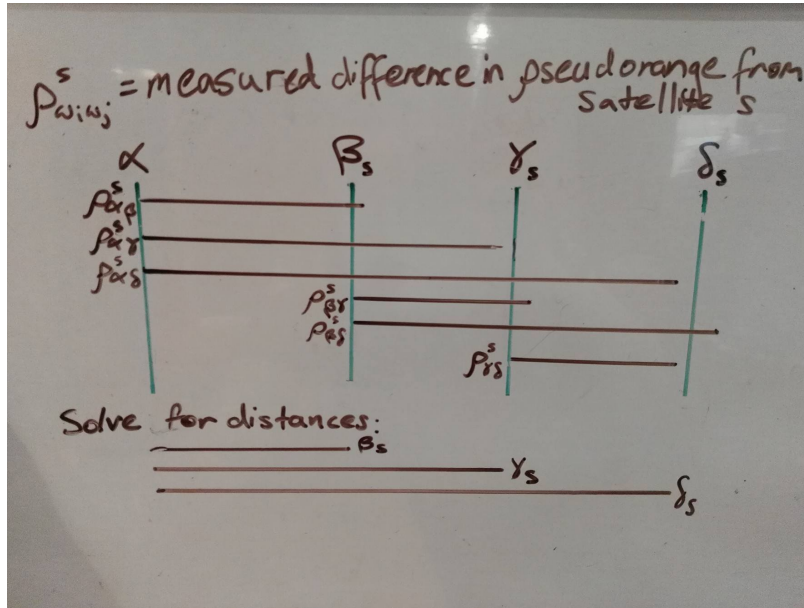 ρˢ_ωᵢωⱼ = measured difference in pseudorange from
satellite s
α βₛ γₛ δₛ
ρˢ_αβ
ρˢ_αγ
ρˢ_αδ
ρˢ_βγ
ρˢ_βδ
ρˢ_γδ
Solve for distances:
βₛ
γₛ
δₛ